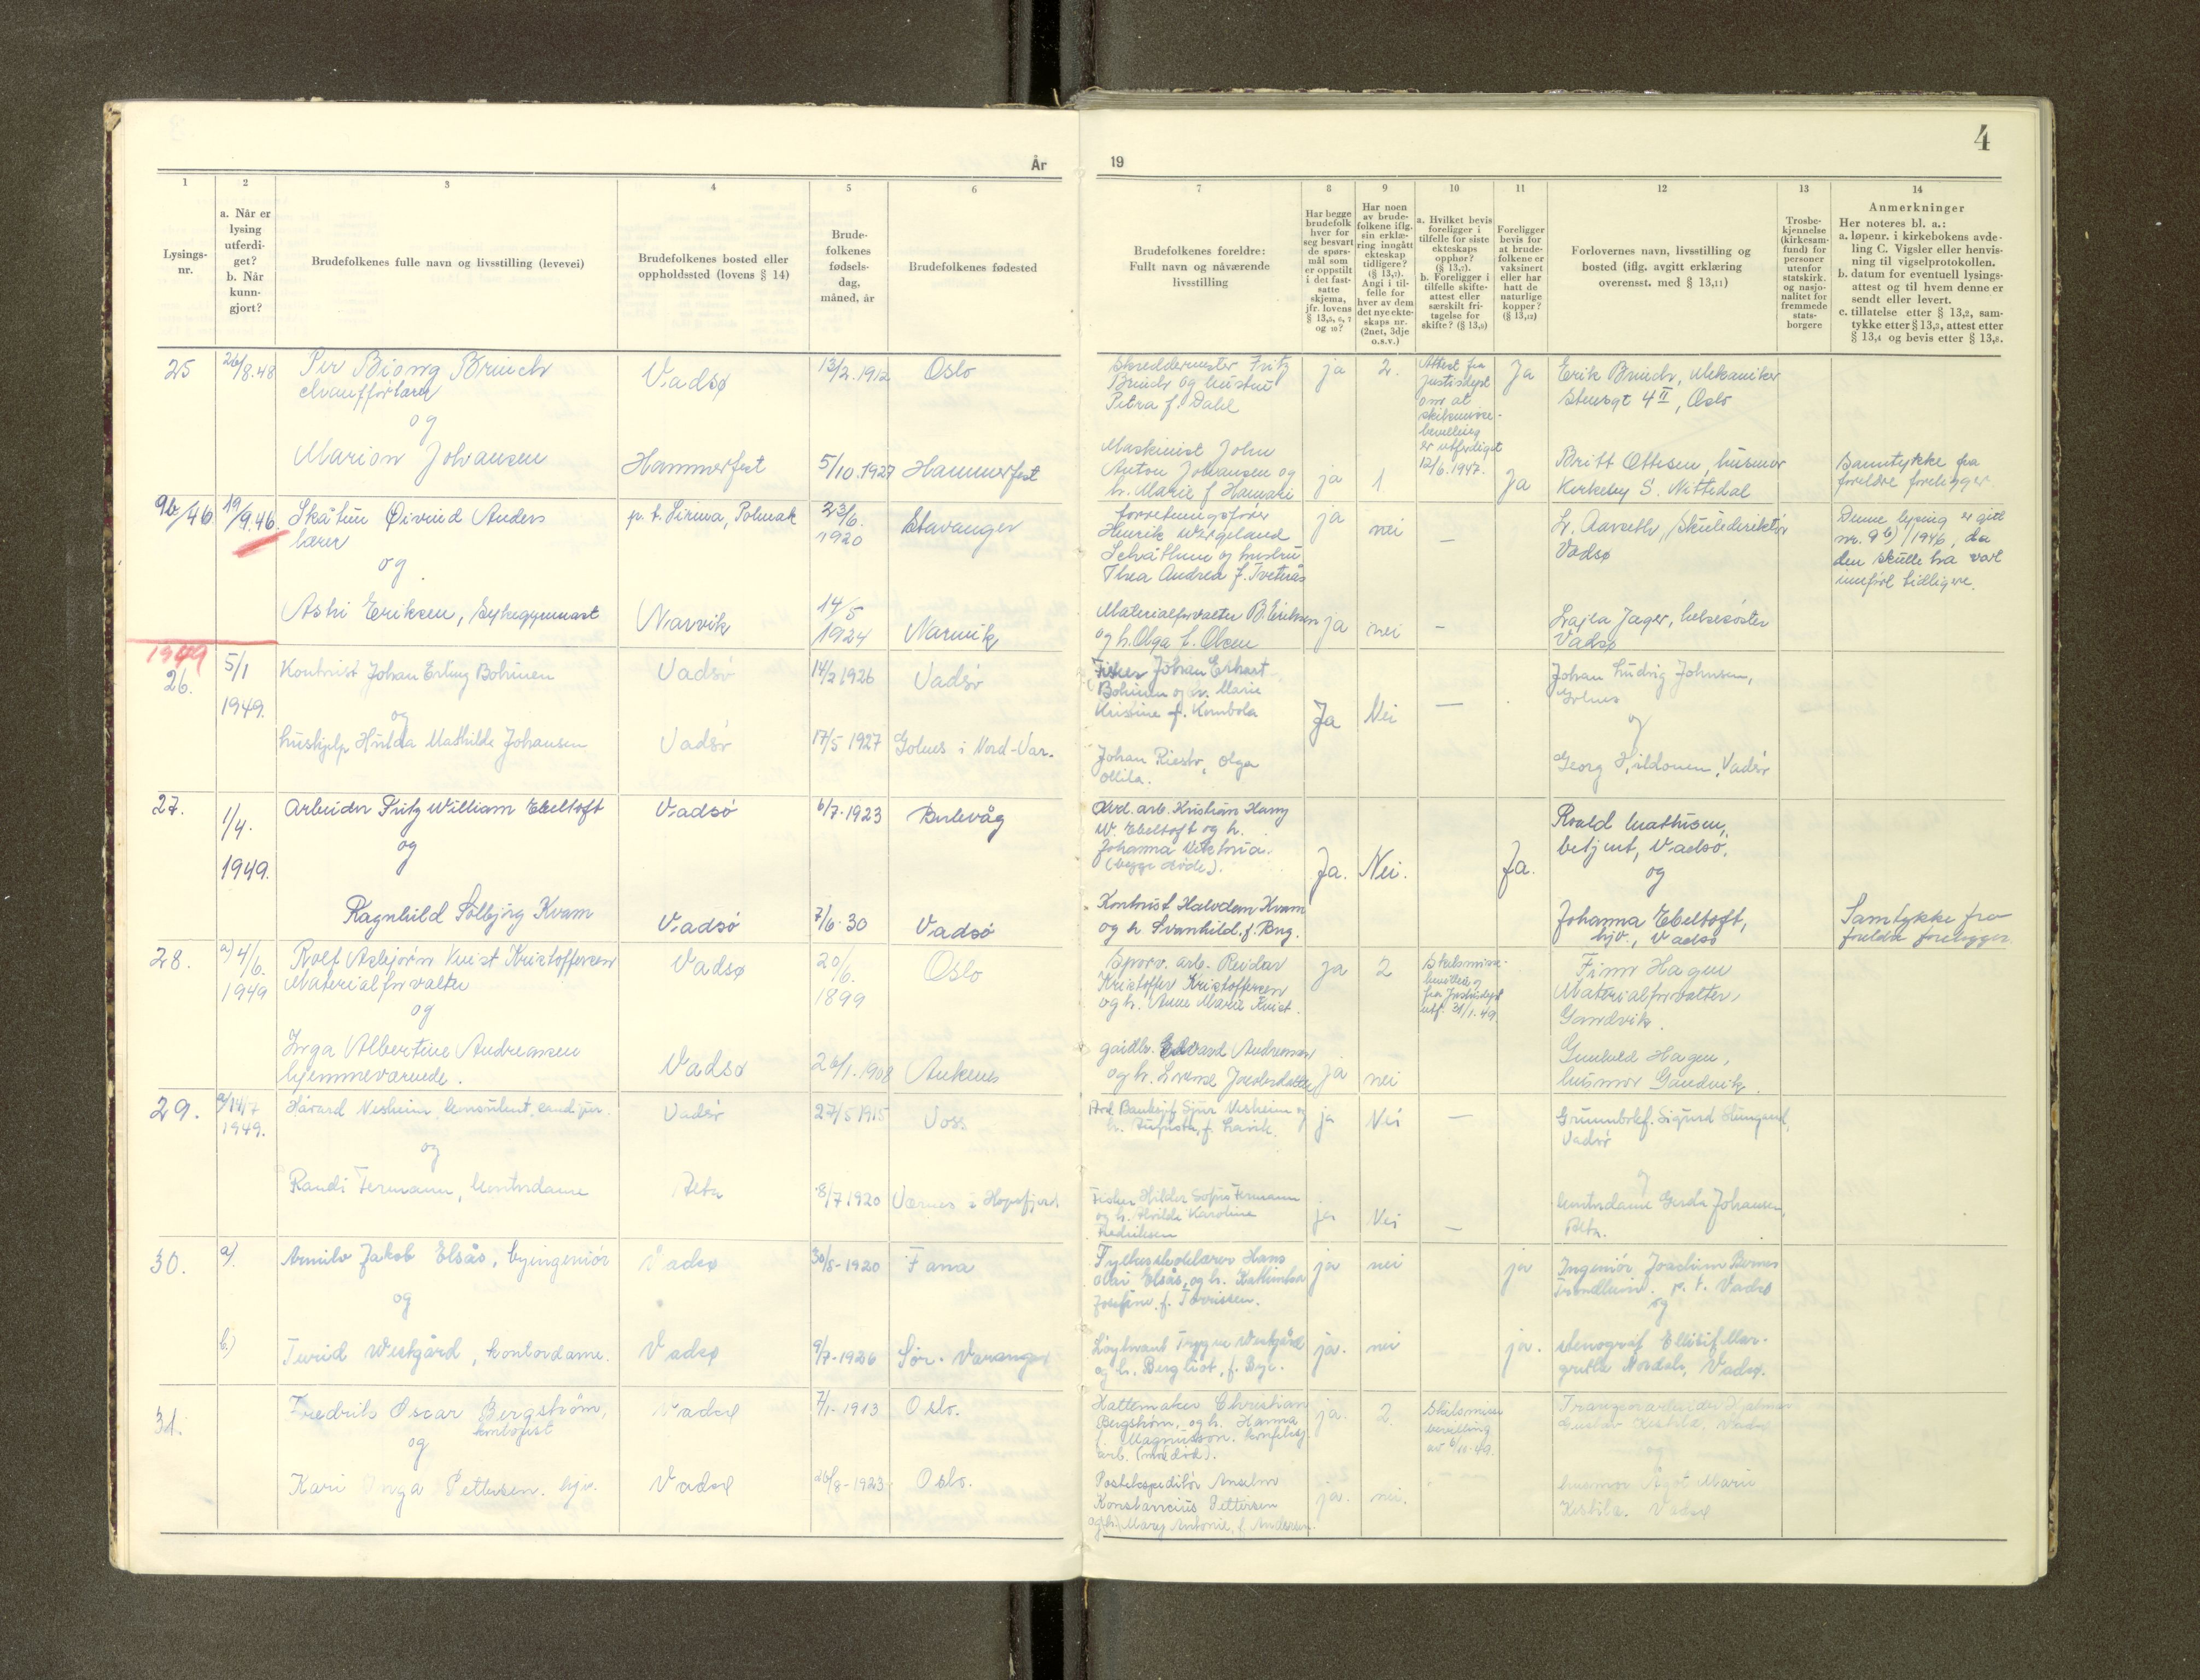 4
År
19
1
2
3
4
5
6
7
8
9
10
11
12
13
14
Lysings-
nr.
a. Når er
lysing
utferdi-
get?
b. Når
kunn-
gjort?
Brudefolkenes fulle navn og livsstilling (levevei)
Brudefolkenes bosted eller
oppholdssted (lovens § 14)
Brude-
folkenes
fødsels-
dag,
måned, år
Brudefolkenes fødested
Brudefolkenes foreldre:
Fullt navn og nåværende
livsstilling
Har begge
brudefolk
hver for
seg besvart
de spørs-
mål som
er oppstilt
i det fast-
satte
skjema,
jfr. lovens
§ 13,5, 6, 7
og 10?
Har noen
av brude-
folkene iflg.
sin erklæ-
ring inngått
ekteskap
tidligere?
(§ 13,7).
Angi i til-
felle for
hver av dem
det nye ekte-
skaps nr.
(2net, 3dje
o.s.v.)
a. Hvilket bevis
foreligger i
tilfelle for siste
ekteskaps
opphør?
(§ 13,7).
b. Foreligger i
tilfelle skifte-
attest eller
særskilt fri-
tagelse for
skifte? (§ 13,9)
Foreligger
bevis for
at brude-
folkene er
vaksinert
eller har
hatt de
naturlige
kopper?
(§ 13,12)
Forlovernes navn, livsstilling og
bosted (iflg. avgitt erklæring
overensst. med § 13,11)
Trosbe-
kjennelse
(kirkesam-
fund) for
personer
utenfor
statskirk.
og nasjo-
nalitet for
fremmede
stats-
borgere
Anmerkninger
Her noteres bl. a.:
a. løpenr. i kirkebokens avde-
ling C. Vigsler eller henvis-
ning til vigselprotokollen.
b. datum for eventuell lysings-
attest og til hvem denne er
sendt eller levert.
c. tillatelse etter § 13,2, sam-
tykke etter § 13,3, attest etter
§ 13,4 og bevis etter § 13,8.
25
26/8.48
Per Biong Brinch
og
Marion Johansen
Vadsø
Hammerfest
13/2.1912
5/10.1927
Oslo
Hammerfest
Skreddermester Fritz
Brinch og hustru
Petra f. Dahl
Maskinist John
Anton Johansen og
h. Marie f.
ja
ja
2.
1
Attest fra
justisdept
om at
skilsmisse-
bevilling
er utferdiget
12/6.1947.
Ja
Ja
Erik Brinch, mekaniker
4 II, Oslo
Britt Ottesen, husmor
Kirkeby S. Nittedal
Samtykke fra
foreldre foreligger
9b/46
19/9.46.
Skåtun Øivind Anders
lærer
og
Astri Eriksen, Sykegymnast
p. t. Sirma, Polmak
Narvik
23/6.
1920
14/5
1924
Stavanger
Narvik
Forretningsfører
Henrik Wergeland
og hustru
Thea Andrea f. Tveterås
Materialforvalter B. Eriksen
og h. Olga f. Olsen
ja
ja
nei
nei
—
—
L. Aarseth, Skuledirektør
Vadsø
Lajla Jager, helsesøster
Vadsø
Denne lysing er gitt
nr. 9 b)/1946, da
den skulle ha vært
innført tidligere.
1949
26.
5/1
1949.
Kontorist Johan Erling Bohinen
og
hushjelp Hulda Mathilde Johansen
Vadsø
Vadsø
14/2 1926
17/5 1927
Vadsø
Golnes i Nord-Var.
Fisker Johan Erhart
Bohinen og h. Marie
Kristine f.
Johan Riesto, Olga
Ollila.
Ja
Nei
—
Johan Ludvig Johnsen,
Golnes
og
Georg Hildonen, Vadsø
27.
1/4.
1949.
Arbeider Fritz William Ebeltoft
og
Ragnhild Solbjørg Kvam
Vadsø
Vadsø
6/7-1923
7/6-30
Vadsø
arb. Kristian Harry
W. Ebeltoft og h.
Johanna Viktoria.
(begge døde).
Kontorist Halvdan Kvam
og h Svanhild. f. Berg.
Ja.
Nei.
Ja.
Roald Mathisen,
betjent, Vadsø.
og
Johanna Ebeltoft,
hjv., Vadsø
Samtykke fra
foreldre foreligger
28.
a) 4/6.
1949
Rolf Asbjørn Kvist Kristoffersen
Materialforvalter
og
Inga Albertine Andreassen
hjemmeværende.
Vadsø
Vadsø
20/6.
1899
26/1.1908
Oslo
Ankenes
Sporv. arb. Reidar
Kristoffer Kristoffersen
og h. Anne Marie Kvist.
gårdbr. Edvard Andreassen
og h.
ja
ja
2
nei
Skilsmisse-
bevilling
fra Justisdept
utf. 21/1.49.
Finn Hagen
Materialforvalter,
Gandvik.
Gunvald Hagen,
husmor Gandvik.
29.
a/14/7
1949.
Håvard Nesheim, konsulent, cand. jur.
og
Randi Fermann, kontordame
Vadsø
Alta
27/5 1915
8/7 1920
Voss
Værnes i Hopsfjord.
Banksjef Sjur Nesheim og
h. Augusta, f. Lavik.
Fisker Hilder Sofus Fermann
og h. Alvilde Karoline
Fredriksen
ja
ja
Nei
Nei
—
—
Sigurd
Vadsø
og
kontordame Gerda Johansen,
Alta.
30.
a).
b.)
Jakob Elsås, byingeniør
og
Turid Westgård, kontordame.
Vadsø
Vadsø
30/5-1920
9/7-1926
Fana
Sør-Varanger
Fylkesskolelærer Hans
Olai Elsås, og h. Kathinka
Josefine f. Torrissen.
Løytnant Trygve Westgård
og h. Bergliot, f. Bye.
ja
ja.
nei
nei
ja
ja.
Ingeniør Joachim Bernes
Trondheim. p. t. Vadsø
og
stenograf Ellisif Mar-
grethe Nordals, Vadsø.
31.
Fredrik Oscar Bergstrøm,
kontorist
og
Kari Inga Pettersen. hjv.
Vadsø
Vadsø
7/1-1913
26/8-1923
Oslo.
Oslo.
Hattemaker Christian
Bergstrøm, og h. Hanna
Magnusson. konfeksj.
arb. (mor død).
Postekspeditør Anselm
Konstancius Pettersen
og h. Mary Antonie, f. Andersen.
ja.
ja.
2.
nei.
Skilsmisse
bevilling
av 6/11-49.
Transportarbeider Hjalmar
Gustav Kestila, Vadsø
og
husmor Ågot Marie
Kestila. Vadsø